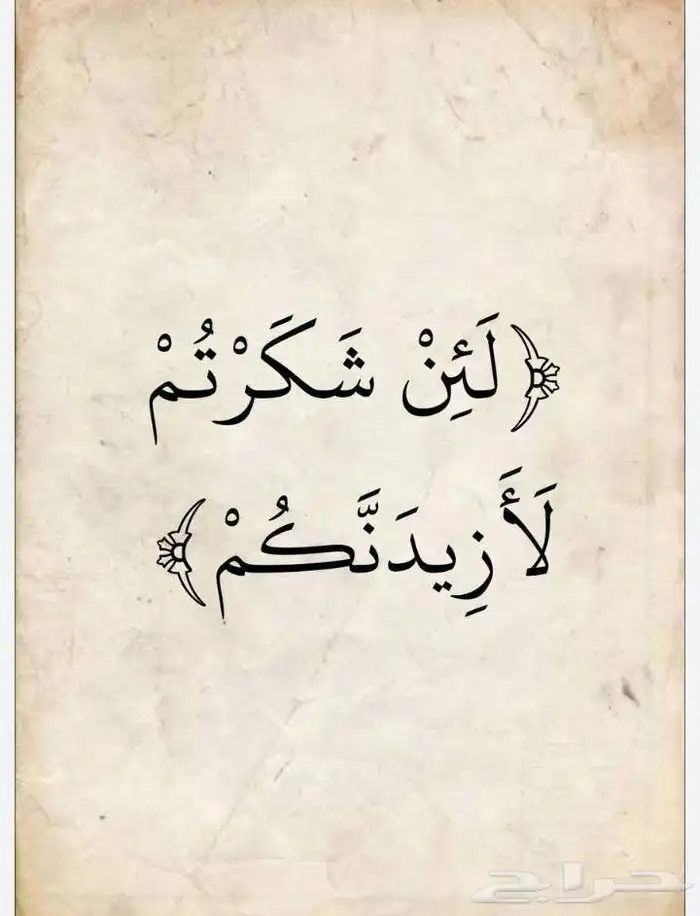 ﴿لَئِنْ شَكَرْتُمْ
لَأَزِيدَنَّكُمْ﴾
حراج